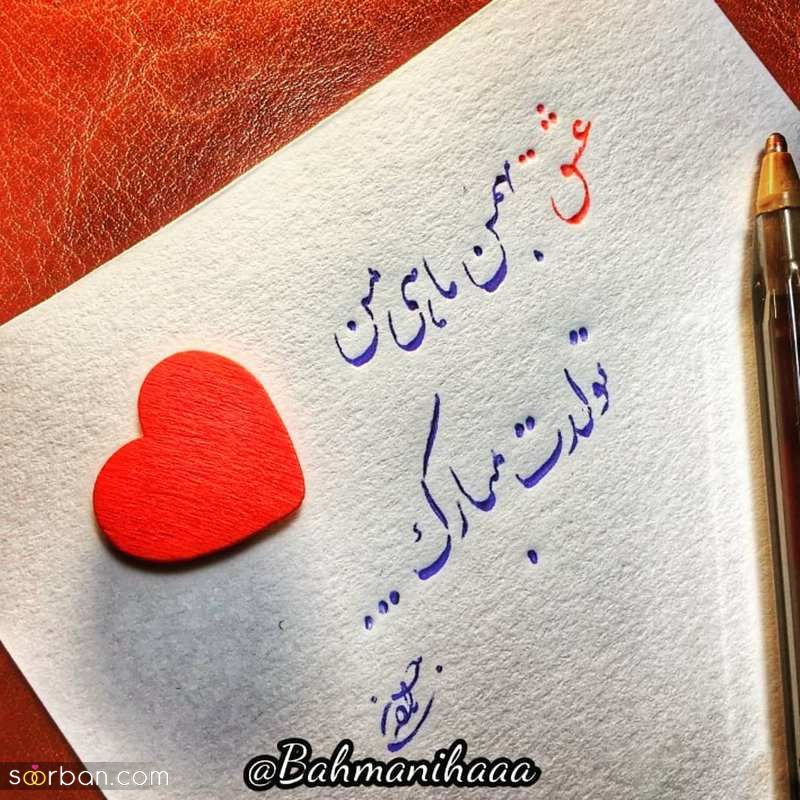 عشق بهمن ماهی من
تولدت مبارک...
@Bahmanihaaa
soorban.com